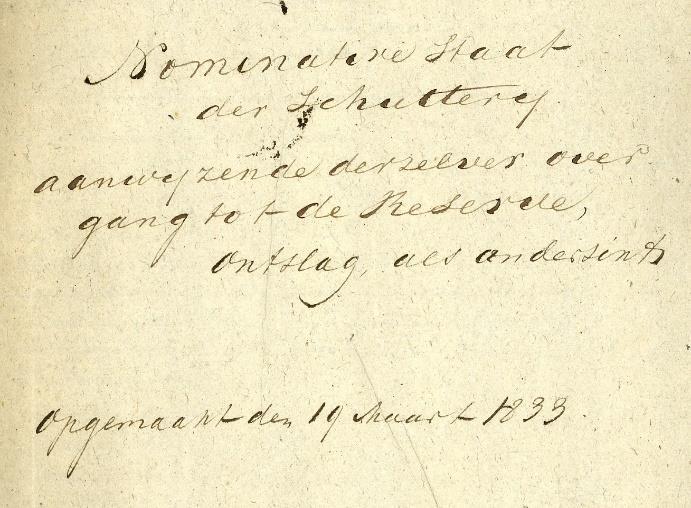 Nominative Staat
der Schuttery
aanwyzende derzelver over
gang tot de Reserve,
ontslag, als andersints
opgemaakt den 19 Maart 1833